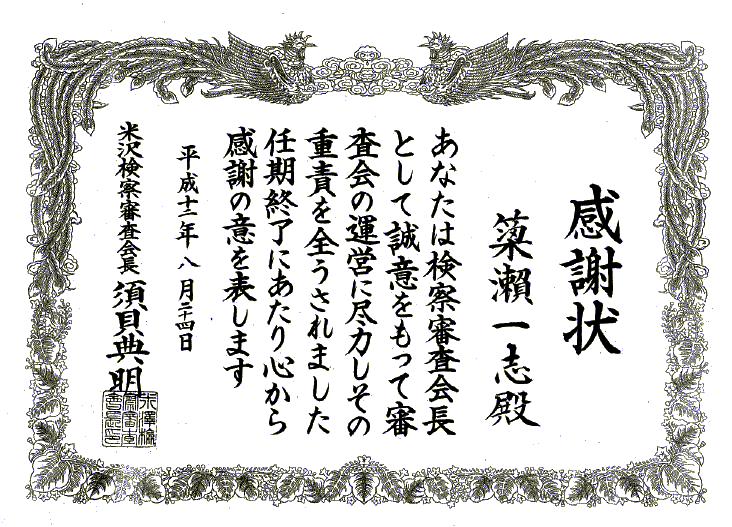 感謝状
簗瀬一志殿
あなたは検察審査会長
として誠意をもって審
査会の運営に尽力しその
重責を全うされました
任期終了にあたり心から
感謝の意を表します
平成十二年八月二十四日
米沢検察審査会長 須貝典明